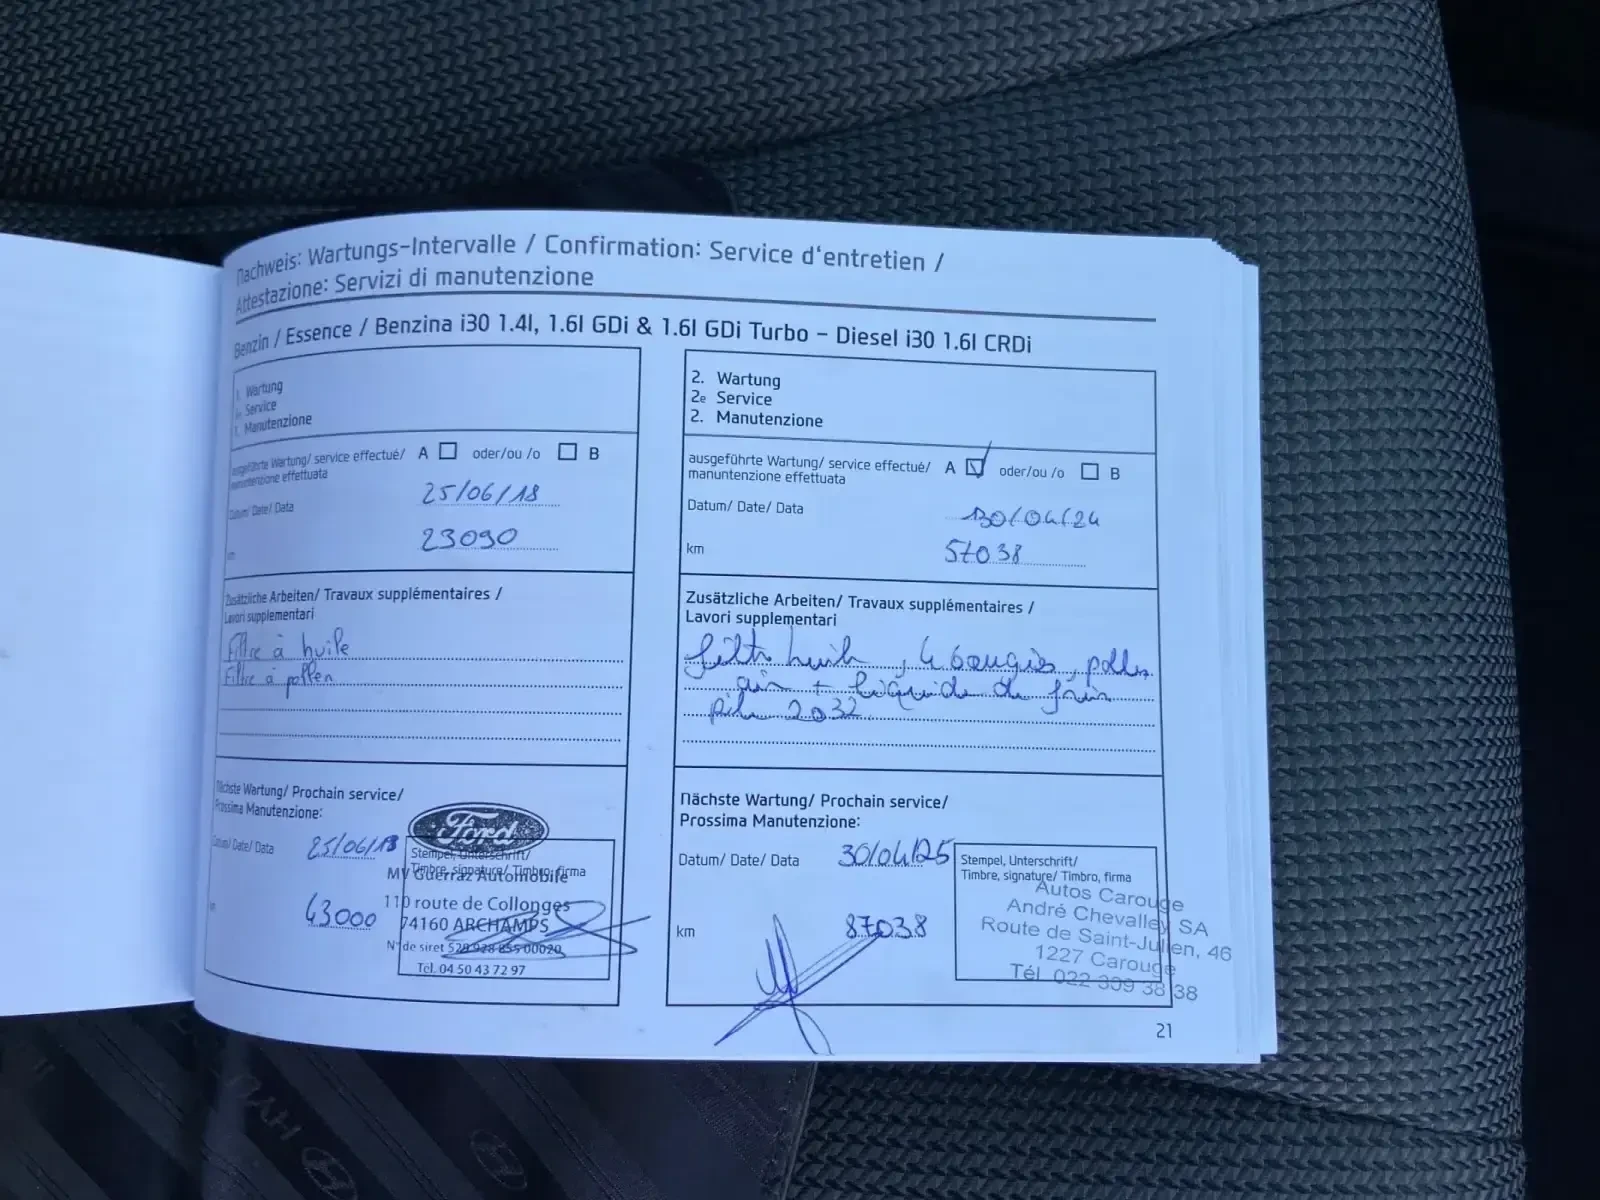 Nachweis: Wartungs-Intervalle / Confirmation: Service d'entretien /
Attestazione: Servizi di manutenzione
Benzin / Essence / Benzina i30 1.4l, 1.6l GDi & 1.6l GDi Turbo – Diesel i30 1.6l CRDi
1. Wartung
Service
1. Manutenzione
ausgeführte Wartung/ service effectué/ A oder/ou /o B
manuntenzione effettuata
25/06/18
Datum/ Date/ Data
23090
km
Zusätzliche Arbeiten/ Travaux supplémentaires /
Lavori supplementari
Filtre à huile
Filtre à pollen
Nächste Wartung/ Prochain service/
Prossima Manutenzione:
Datum/ Date/ Data 25/06/18
43000
Ford
Stempel, Unterschrift/
Timbre, signature/ Timbro, firma
MV Guerraz Automobile
110 route de Collonges
74160 ARCHAMPS
N° de siret 528 928 855 00020
Tel. 04 50 43 72 97
2. Wartung
2e Service
2. Manutenzione
ausgeführte Wartung/ service effectué/ A oder/ou /o B
manuntenzione effettuata
Datum/ Date/ Data 30/04/24
km 57038
Zusätzliche Arbeiten/ Travaux supplémentaires /
Lavori supplementari
filtr huile, 4 bougies, pollen
air + liquide de frein
pile 2032
Nächste Wartung/ Prochain service/
Prossima Manutenzione:
Datum/ Date/ Data 30/04/25
km 87038
Stempel, Unterschrift/
Timbre, signature/ Timbro, firma
Autos Carouge
André Chevalley SA
Route de Saint-Julien, 46
1227 Carouge
Tél 022 309 38 38
21
HYU